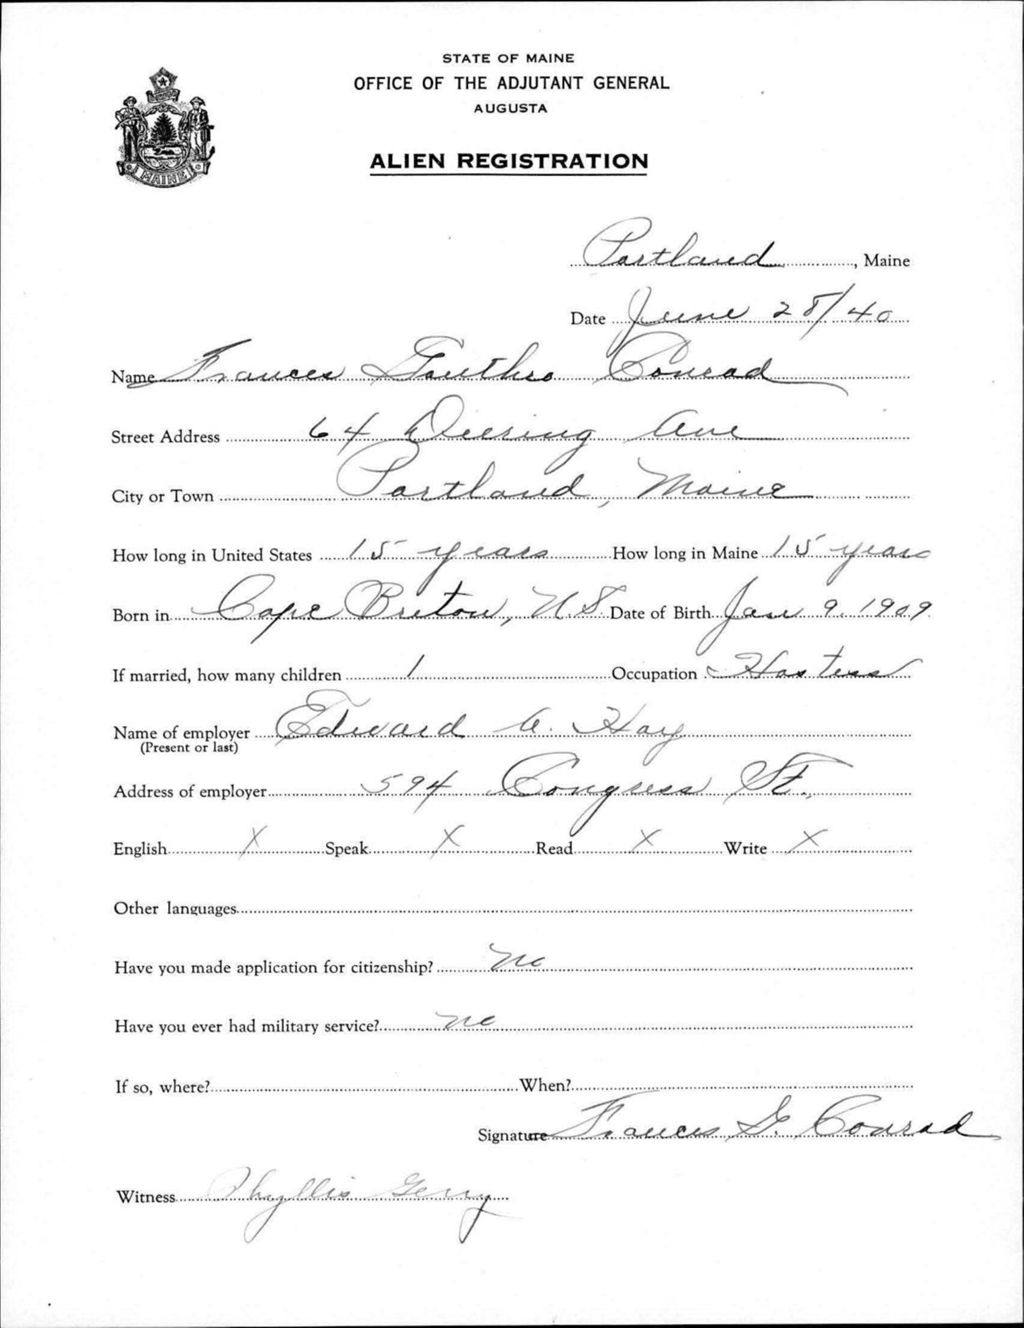 STATE OF MAINE
OFFICE OF THE ADJUTANT GENERAL
AUGUSTA
MAINE
ALIEN REGISTRATION
Portland, Maine
Date June 28/40
Name Frances Gouthro Conrad
Street Address 64 Deering Ave
City or Town Portland, Maine
How long in United States 15 years How long in Maine 15 years
Born in Cape Breton, N.S. Date of Birth Jan 9, 1909
If married, how many children 1 Occupation Hostess
Name of employer Edward A. Hay
(Present or last)
Address of employer 594 Congress St.,
English X Speak X Read X Write X
Other languages
Have you made application for citizenship? No
Have you ever had military service? no
If so, where? When?
Signature Frances G. Conrad
Witness Phyllis Gerry